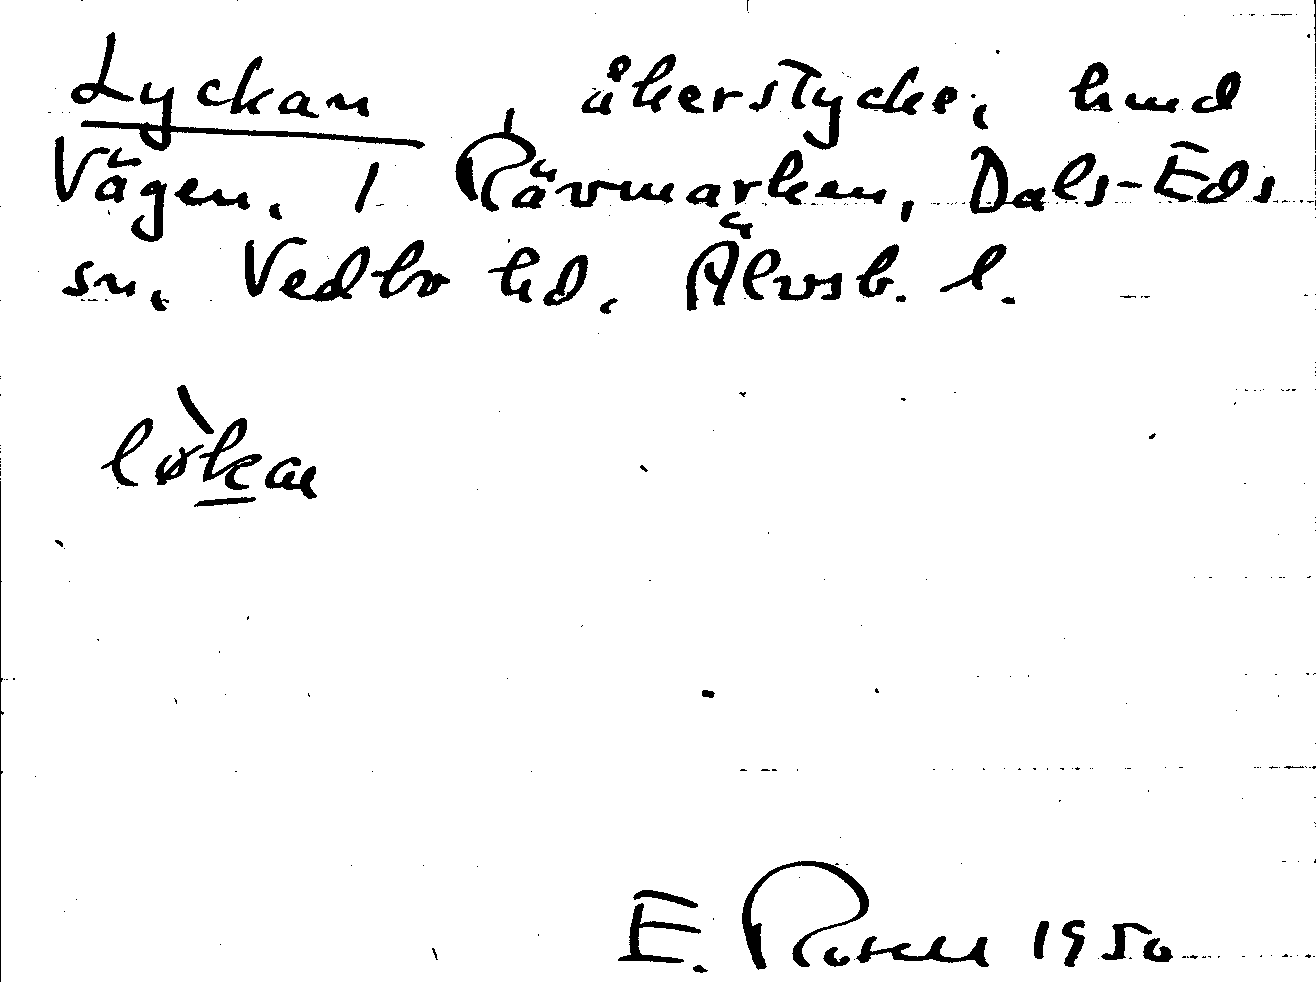 Lyckan, åkerstycke, hmd
Vägen. 1 Rävmarken, Dals-Eds
sn, Vedbo hd. Älvsb. l.
lø̀kan
E. Rosell 1950